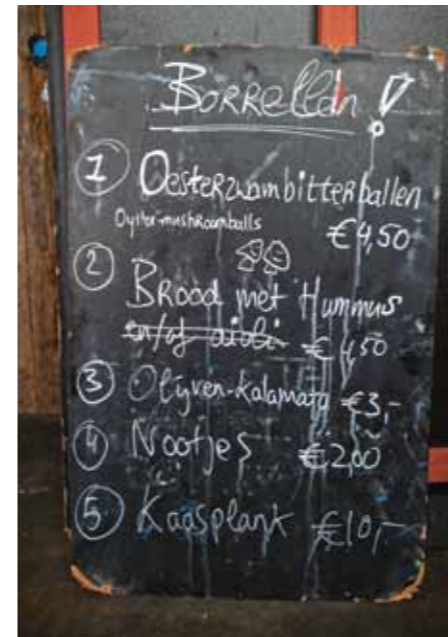 Borrellen!
1 Oesterzwambitterballen
Oyster-mushroomballs
€4,50
2
Brood met Hummus
en/of aioli € 4,50
3 Olijven-Kalamata €3,-
4 Nootjes €2,00
5 Kaasplank €10,-